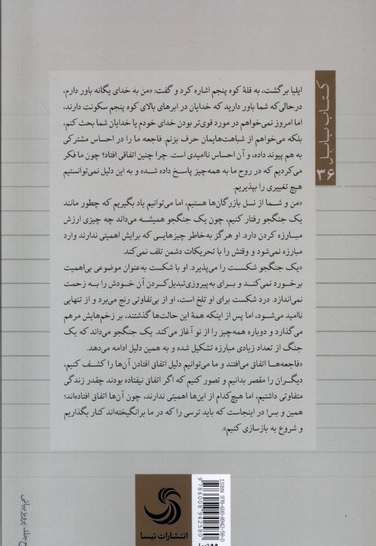 ایلیا برگشت، به قلۀ کوه پنجم اشاره کرد و گفت: «من به خدای یگانه باور دارم،
درحالی‌که شما باور دارید که خدایان در ابرهای بالای کوه پنجم سکونت دارند،
اما امروز نمی‌خواهم در مورد قوی‌تر بودن خدای خودم یا خدایان شما بحث کنم،
بلکه می‌خواهم از شباهت‌هایمان حرف بزنم. فاجعه ما را در احساس مشترکی
به هم پیوند داده، و آن احساس ناامیدی است. چرا چنین اتفاقی افتاد؟ چون ما فکر
می‌کردیم که در روح ما به همه‌چیز پاسخ داده شده و به این دلیل نمی‌توانستیم
هیچ تغییری را بپذیریم.
«من و شما از نسل بازرگان‌ها هستیم، اما می‌توانیم یاد بگیریم که چطور مانند
یک جنگجو رفتار کنیم، چون یک جنگجو همیشه می‌داند چه چیزی ارزش
مبارزه کردن دارد. او هرگز به‌خاطر چیزهایی که برایش اهمیتی ندارند وارد
مبارزه نمی‌شود و وقتش را با تحریکات دشمن تلف نمی‌کند.
«یک جنگجو شکست را می‌پذیرد. او با شکست به‌عنوان موضوعی بی‌اهمیت
برخورد نمی‌کند و برای به‌پیروزی‌تبدیل‌کردن آن خودش را به زحمت
نمی‌اندازد. درد شکست برای او تلخ است، او از بی‌تفاوتی رنج می‌برد و از تنهایی
ناامید می‌شود، اما پس از اینکه همۀ این حالت‌ها گذشتند، بر زخم‌هایش مرهم
می‌گذارد و دوباره همه‌چیز را از نو آغاز می‌کند. یک جنگجو می‌داند که یک
جنگ از تعداد زیادی مبارزه تشکیل شده و به همین دلیل ادامه می‌دهد.
«فاجعه‌ها اتفاق می‌افتند و ما می‌توانیم دلیل اتفاق افتادن آن‌ها را کشف کنیم،
دیگران را مقصر بدانیم و تصور کنیم که اگر اتفاق نیفتاده بودند چقدر زندگی
متفاوتی داشتیم، اما هیچ‌کدام از این‌ها اهمیتی ندارند، چون آن‌ها اتفاق افتاده‌اند؛
همین و بس! در اینجاست که باید ترسی را که در ما برانگیخته‌اند کنار بگذاریم
و شروع به بازسازی کنیم».
کتاب بابل
۳۶
انتشارات تیسا
9786008942580